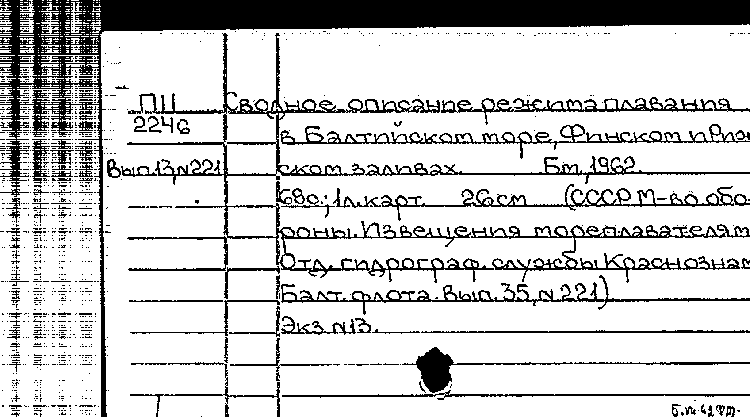 ПЦ Сводное описание режима плавания
2246 в Балтийском море, Финском и Риж
Вып.13,N221 ском заливах. Б.м., 1962.
68с.; 1л.карт. 26см (СССР М-во обо-
роны. Извещения мореплавателям
Отд. гидрограф. службы Краснознам
Балт. флота. Вып. 35, N 221)
Экз N13.